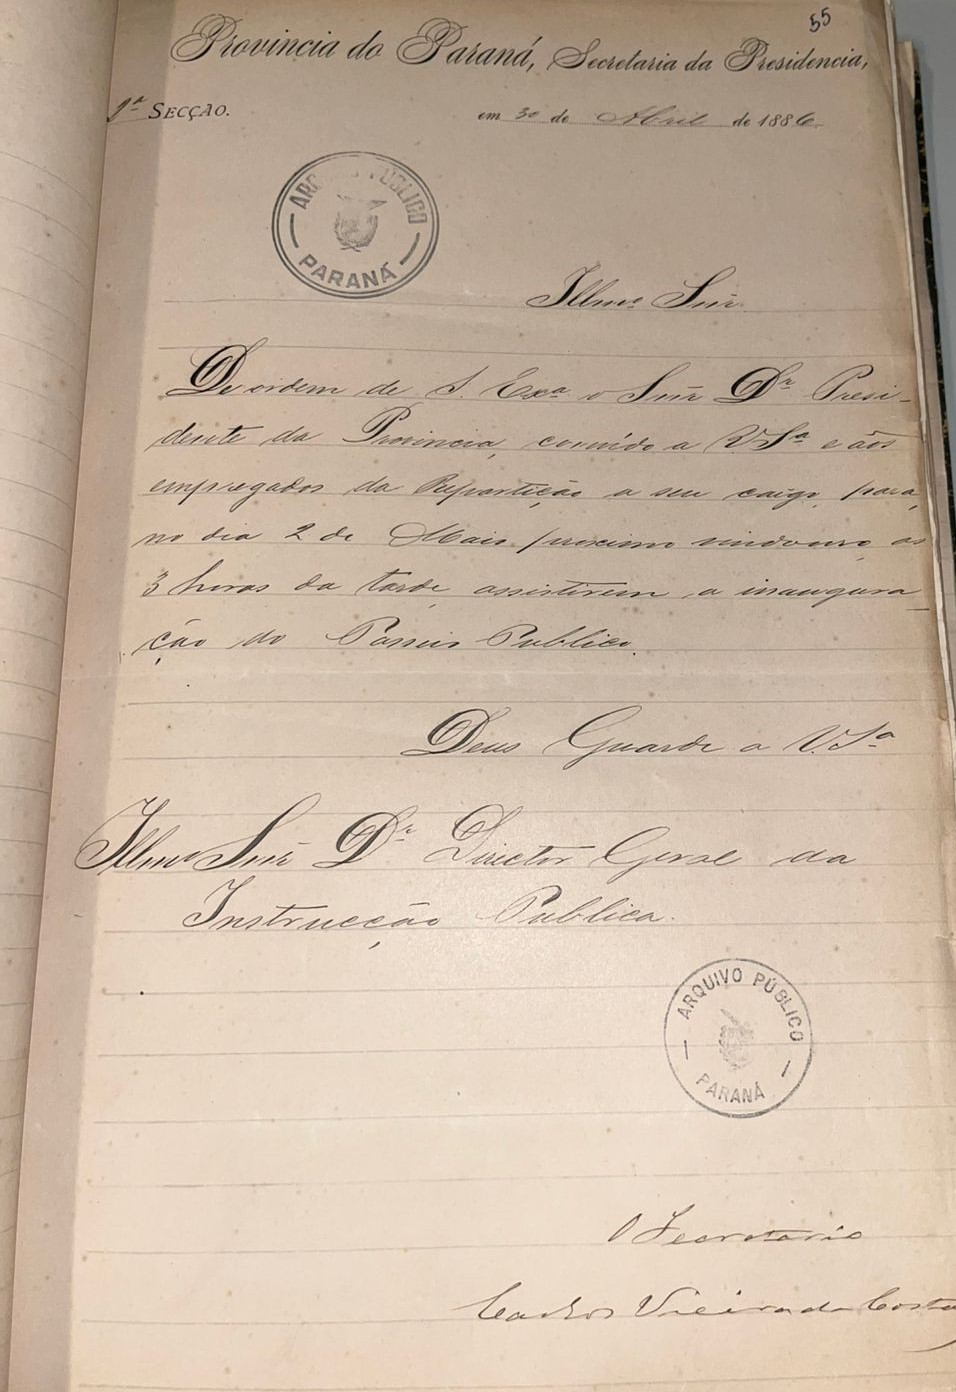 55
Provincia do Paraná, Secretaria da Presidencia,
1ª SECÇÃO.
em 30 de Abril de 1886
ARQUIVO PÚBLICO
PARANÁ
Illmº Sñr.
De ordem de S. Exª o Sñr Dr. Presi-
dente da Provincia, convido a V.Sª e aos
empregados da Repartição a seu cargo, para,
no dia 2 de Maio proximo vindouro, as
3 horas da tarde, assistirem a inaugura-
ção do Passeio Publico.
Deus Guarde a V.Sª
Illmº Sñr Dr. Director Geral da
Instrucção Publica.
ARQUIVO PÚBLICO
PARANÁ
O Secretario
Carlos Vieira da Costa